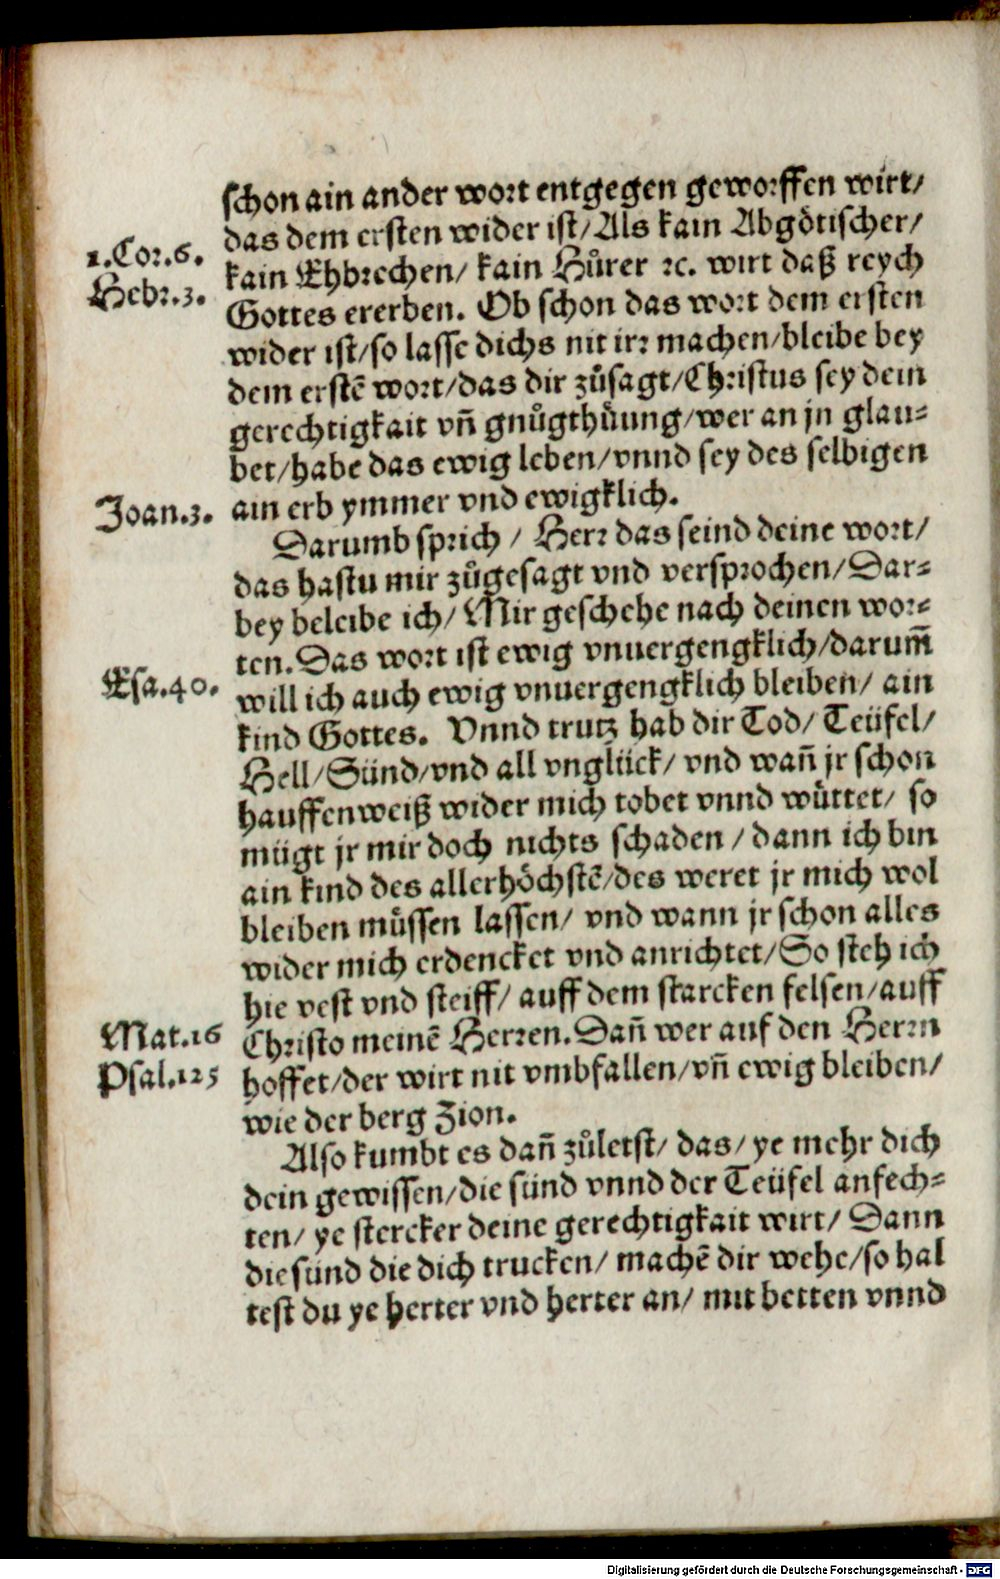 schon ain ander wort entgegen geworffen wirt/
das dem ersten wider ist/Als kain Abgötischer/
1.Cor.6.
kain Ehbrechen/ kain Hůrer ꝛc. wirt daß reych
Hebr.3.
Gottes ererben. Ob schon das wort dem ersten
wider ist/so lasse dichs nit irr machen/bleibe bey
dem erstē wort/das dir zůsagt/Christus sey dein
gerechtigkait vñ gnůgthůung/wer an jn glau⸗
bet/habe das ewig leben/vnnd sey des selbigen
Joan.3.
ain erb ymmer vnd ewigklich.
Darumb sprich / Herr das seind deine wort/
das hastu mir zůgesagt vnd versprochen/Dar⸗
bey beleibe ich/ Mir geschehe nach deinen wor⸗
ten. Das wort ist ewig vnuergengklich/darum̃
Esa.40.
will ich auch ewig vnuergengklich bleiben/ ain
kind Gottes. Vnnd trutz hab dir Tod/ Teüfel/
Hell/Sünd/vnd all vnglück/ vnd wañ jr schon
hauffenweiß wider mich tobet vnnd wüttet/ so
mügt jr mir doch nichts schaden / dann ich bin
ain kind des allerhöchstē/des weret jr mich wol
bleiben müssen lassen/ vnd wann jr schon alles
wider mich erdencket vnd anrichtet/So steh ich
hie vest vnd steiff/ auff dem starcken felsen/auff
Mat.16
Christo meinē Herren. Dañ wer auf den Herrn
Psal.125
hoffet/der wirt nit vmbfallen/vñ ewig bleiben/
wie der berg Zion.
Also kumbt es dañ zůletst/ das/ ye mehr dich
dein gewissen/die sünd vnnd der Teüfel anfech⸗
ten/ ye stercker deine gerechtigkait wirt/ Dann
die sünd die dich trucken/ machē dir wehe/so hal
test du ye herter vnd herter an/ mit betten vnnd
Digitalisierung gefördert durch die Deutsche Forschungsgemeinschaft - DFG